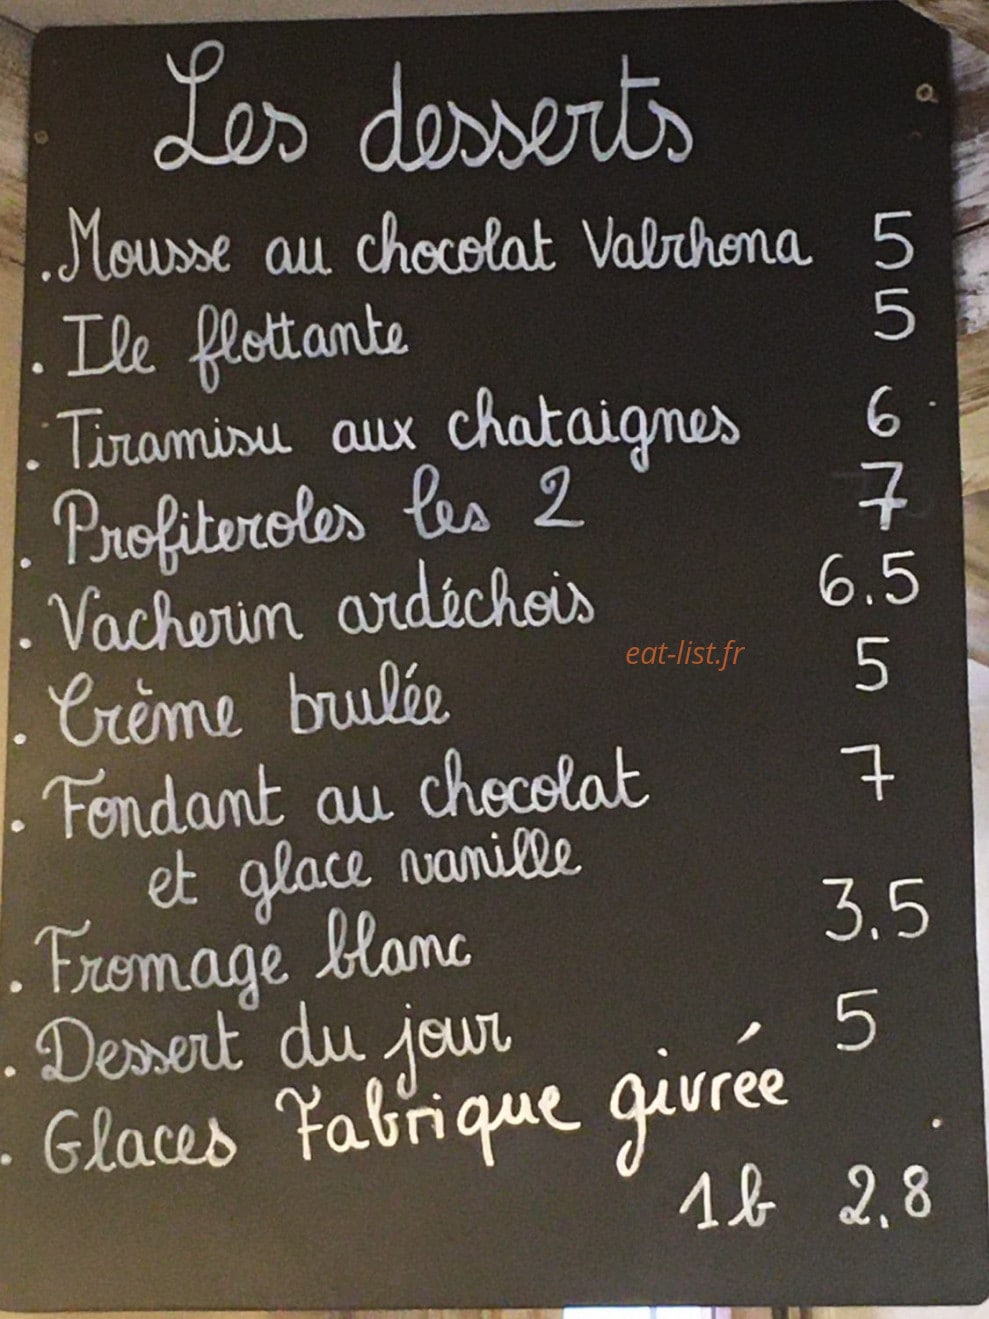 Les desserts
. Mousse au chocolat Valrhona 5
. Ile flottante 5
. Tiramisu aux chataignes 6
. Profiteroles les 2 7
. Vacherin ardéchois 6.5
eat-list.fr
. Crème brulée 5
. Fondant au chocolat 7
et glace vanille
. Fromage blanc 3.5
. Dessert du jour 5
. Glaces Fabrique givrée
1b 2.8